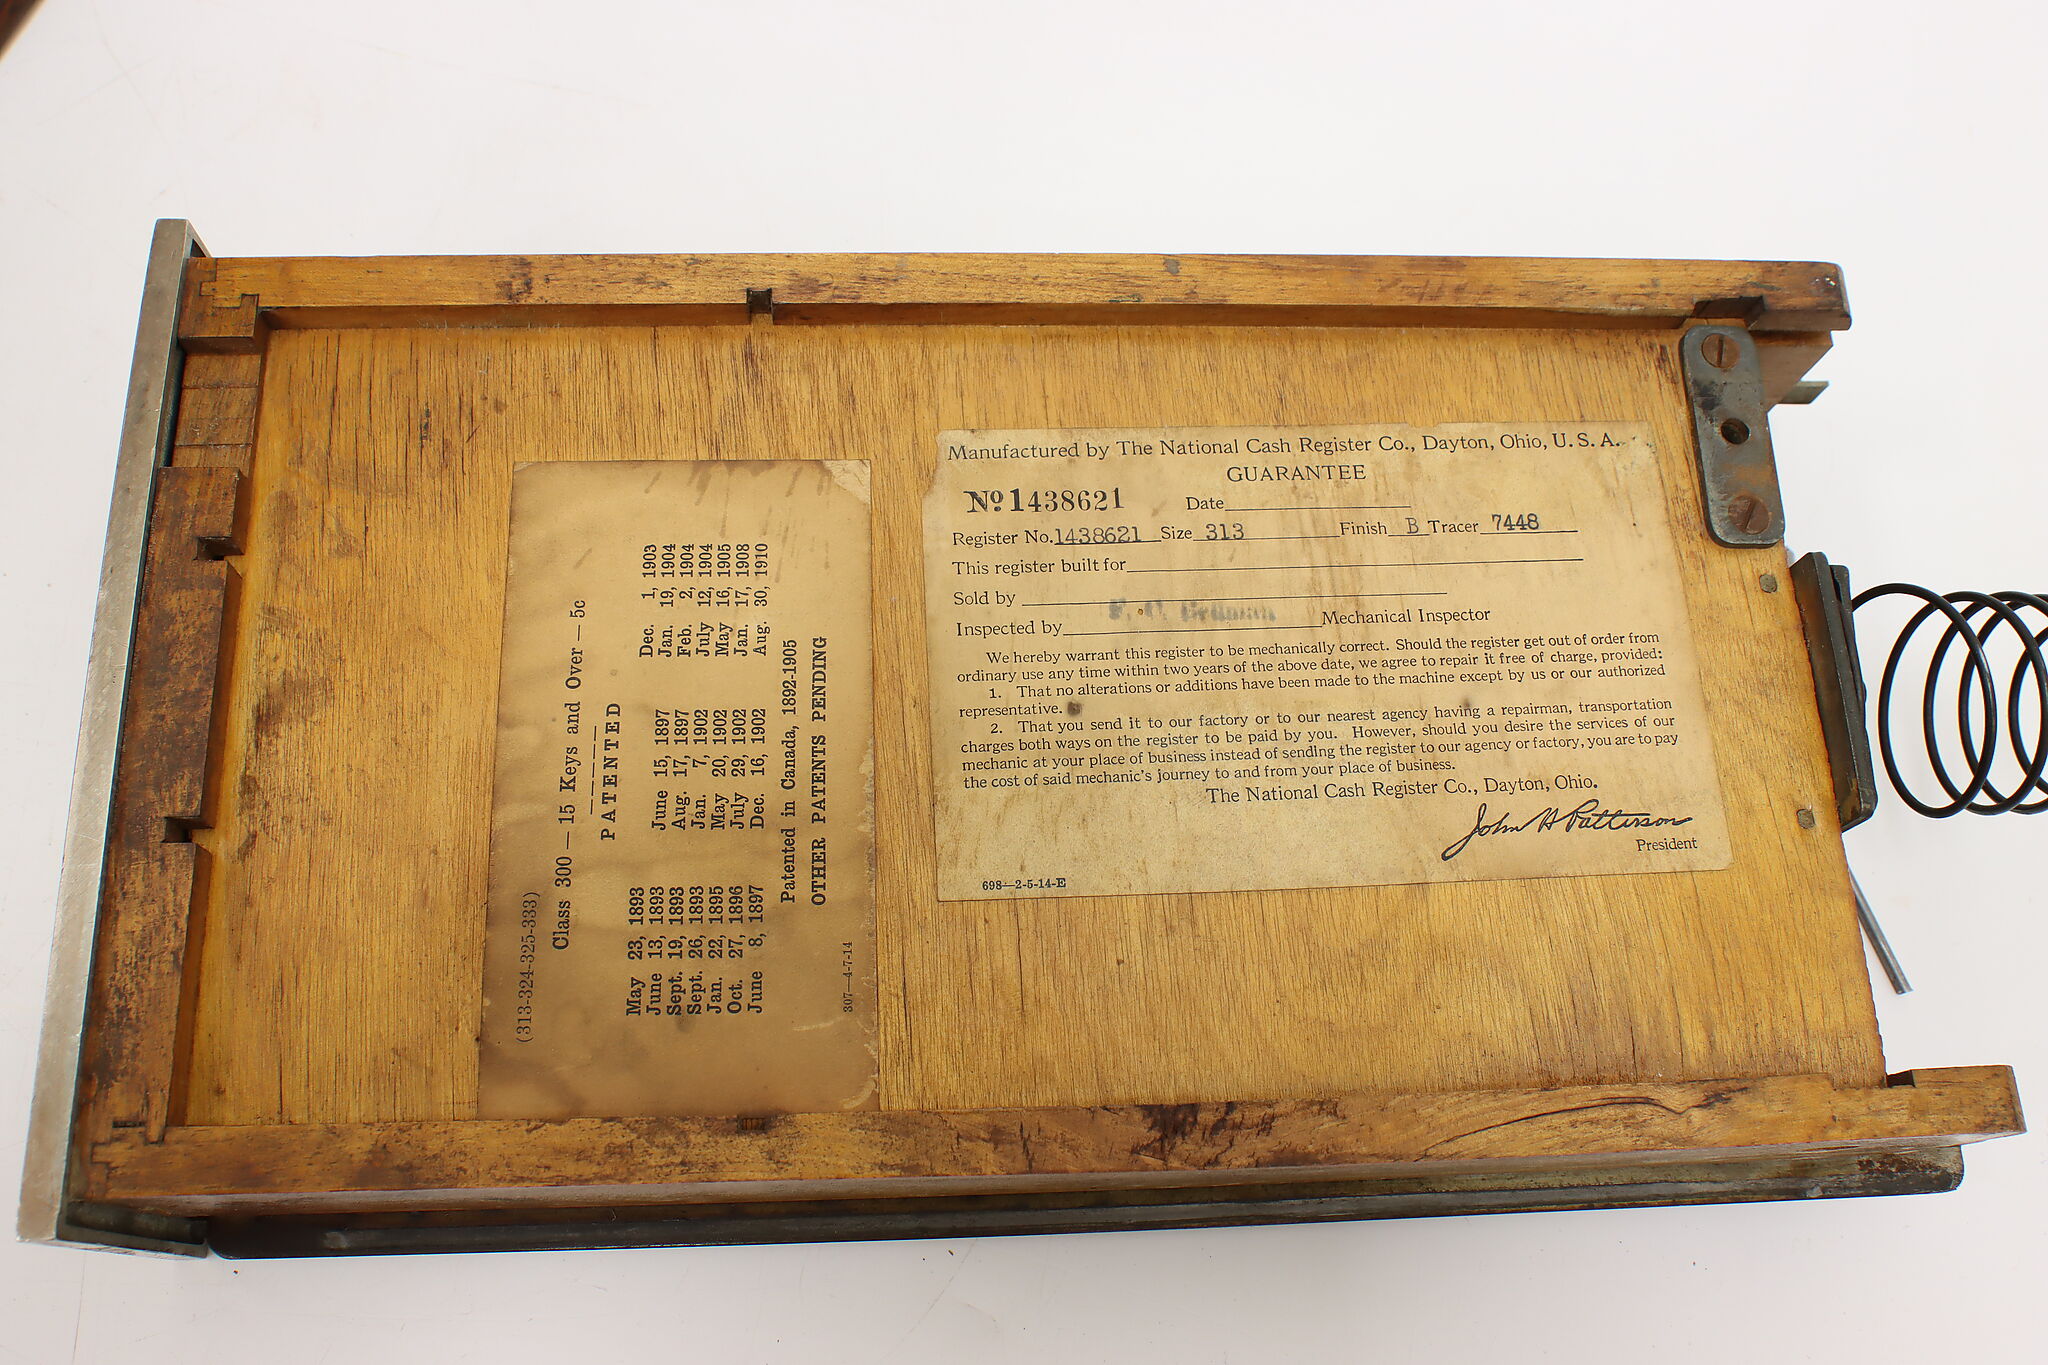 Manufactured by The National Cash Register Co., Dayton, Ohio, U. S. A.
GUARANTEE
No. 1438621 Date
Register No. 1438621 Size 313 Finish B Tracer 7448
This register built for
Sold by
Inspected by F. C. Mechanical Inspector
We hereby warrant this register to be mechanically correct. Should the register get out of order from
ordinary use any time within two years of the above date, we agree to repair it free of charge, provided:
1. That no alterations or additions have been made to the machine except by us or our authorized
representative.
2. That you send it to our factory or to our nearest agency having a repairman, transportation
charges both ways on the register to be paid by you. However, should you desire the services of our
mechanic at your place of business instead of sending the register to our agency or factory, you are to pay
the cost of said mechanic's journey to and from your place of business.
The National Cash Register Co., Dayton, Ohio.
John H Patterson
President
698—2-5-14-E
(313-324-325-333)
Class 300 — 15 Keys and Over — 5c
PATENTED
May 23, 1893 June 15, 1897 Dec. 1, 1903
June 13, 1893 Aug. 17, 1897 Jan. 19, 1904
Sept. 19, 1893 Jan. 7, 1902 Feb. 2, 1904
Sept. 26, 1893 May 20, 1902 July 12, 1904
Jan. 22, 1895 July 29, 1902 May 16, 1905
Oct. 27, 1896 Dec. 16, 1902 Jan. 17, 1908
June 8, 1897 Aug. 30, 1910
Patented in Canada, 1892-1905
OTHER PATENTS PENDING
307—4-7-14